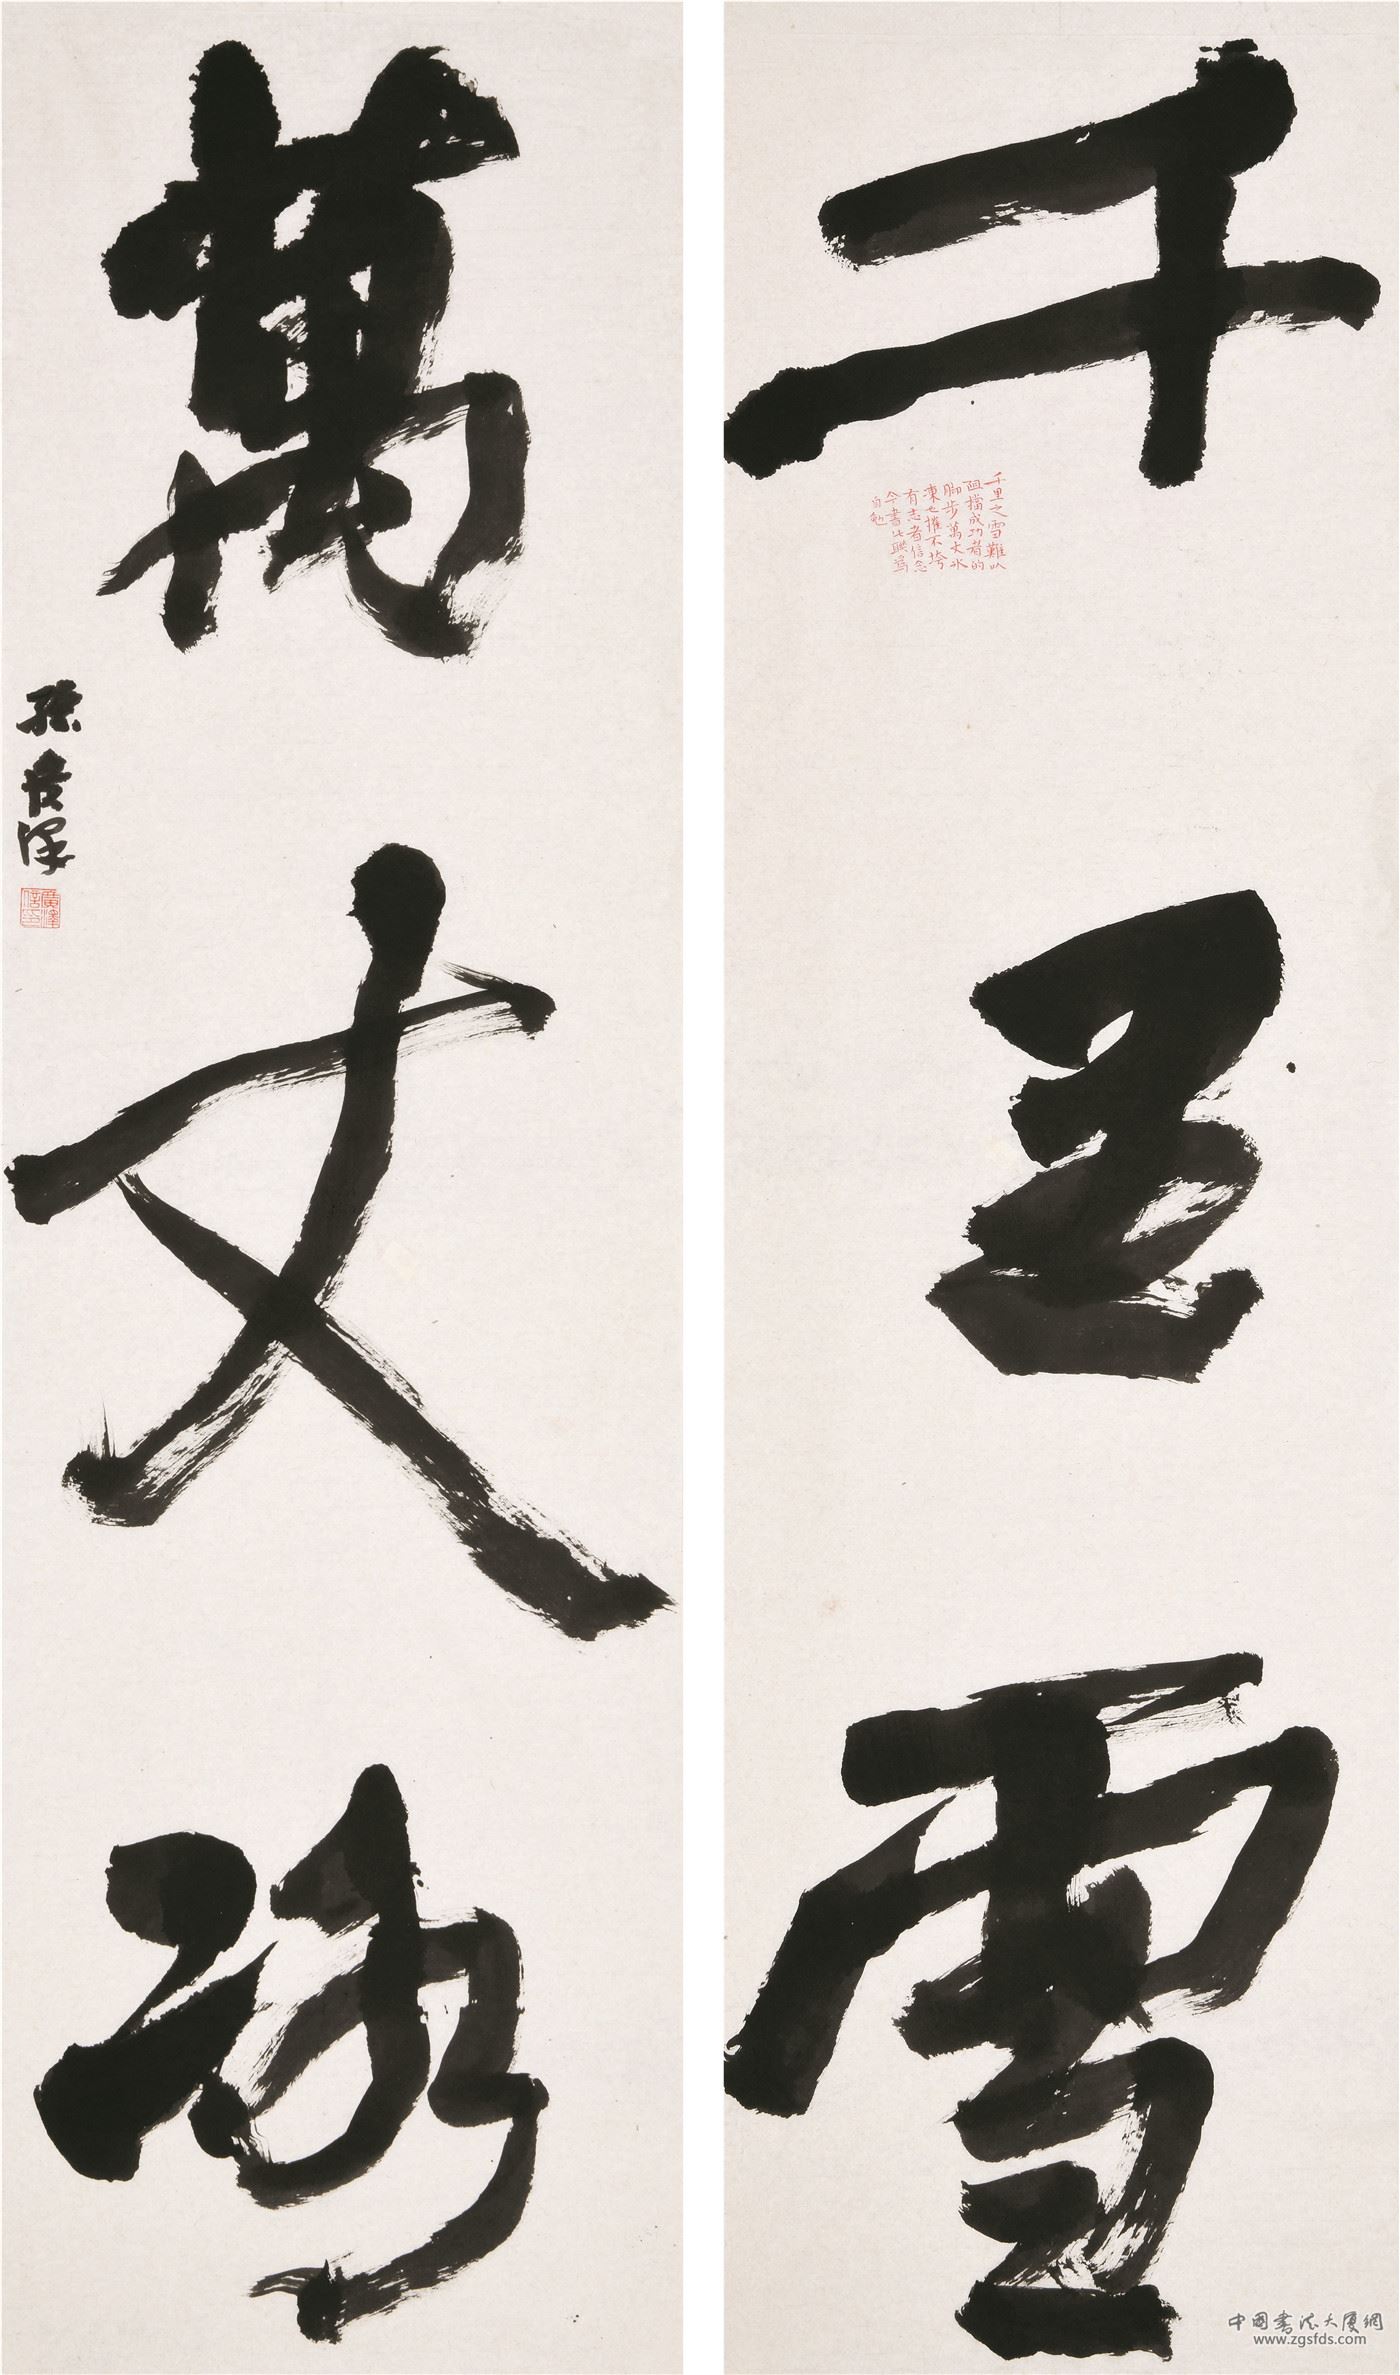 千里雪
千里之雪難以
阻擋成功者的
脚步萬丈冰
凍也摧不垮
有志者信念
今書此聯為
自勉
萬丈冰
孫廣澤
廣澤
信印
中國書法大廈網
www.zgsfds.com